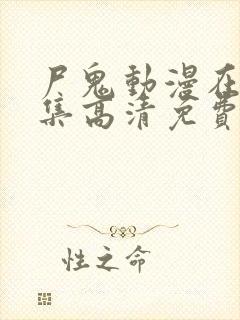 尸鬼動漫在
集高清免費
性之命